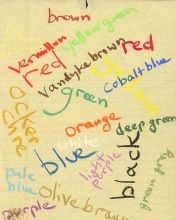 brown
yellow green
vermilion
red
red
Vandyke brown
cobalt blue
green
ocker
orange
deep green
white
blue
black
light
purple
pale
blue
olive brown
green
purple